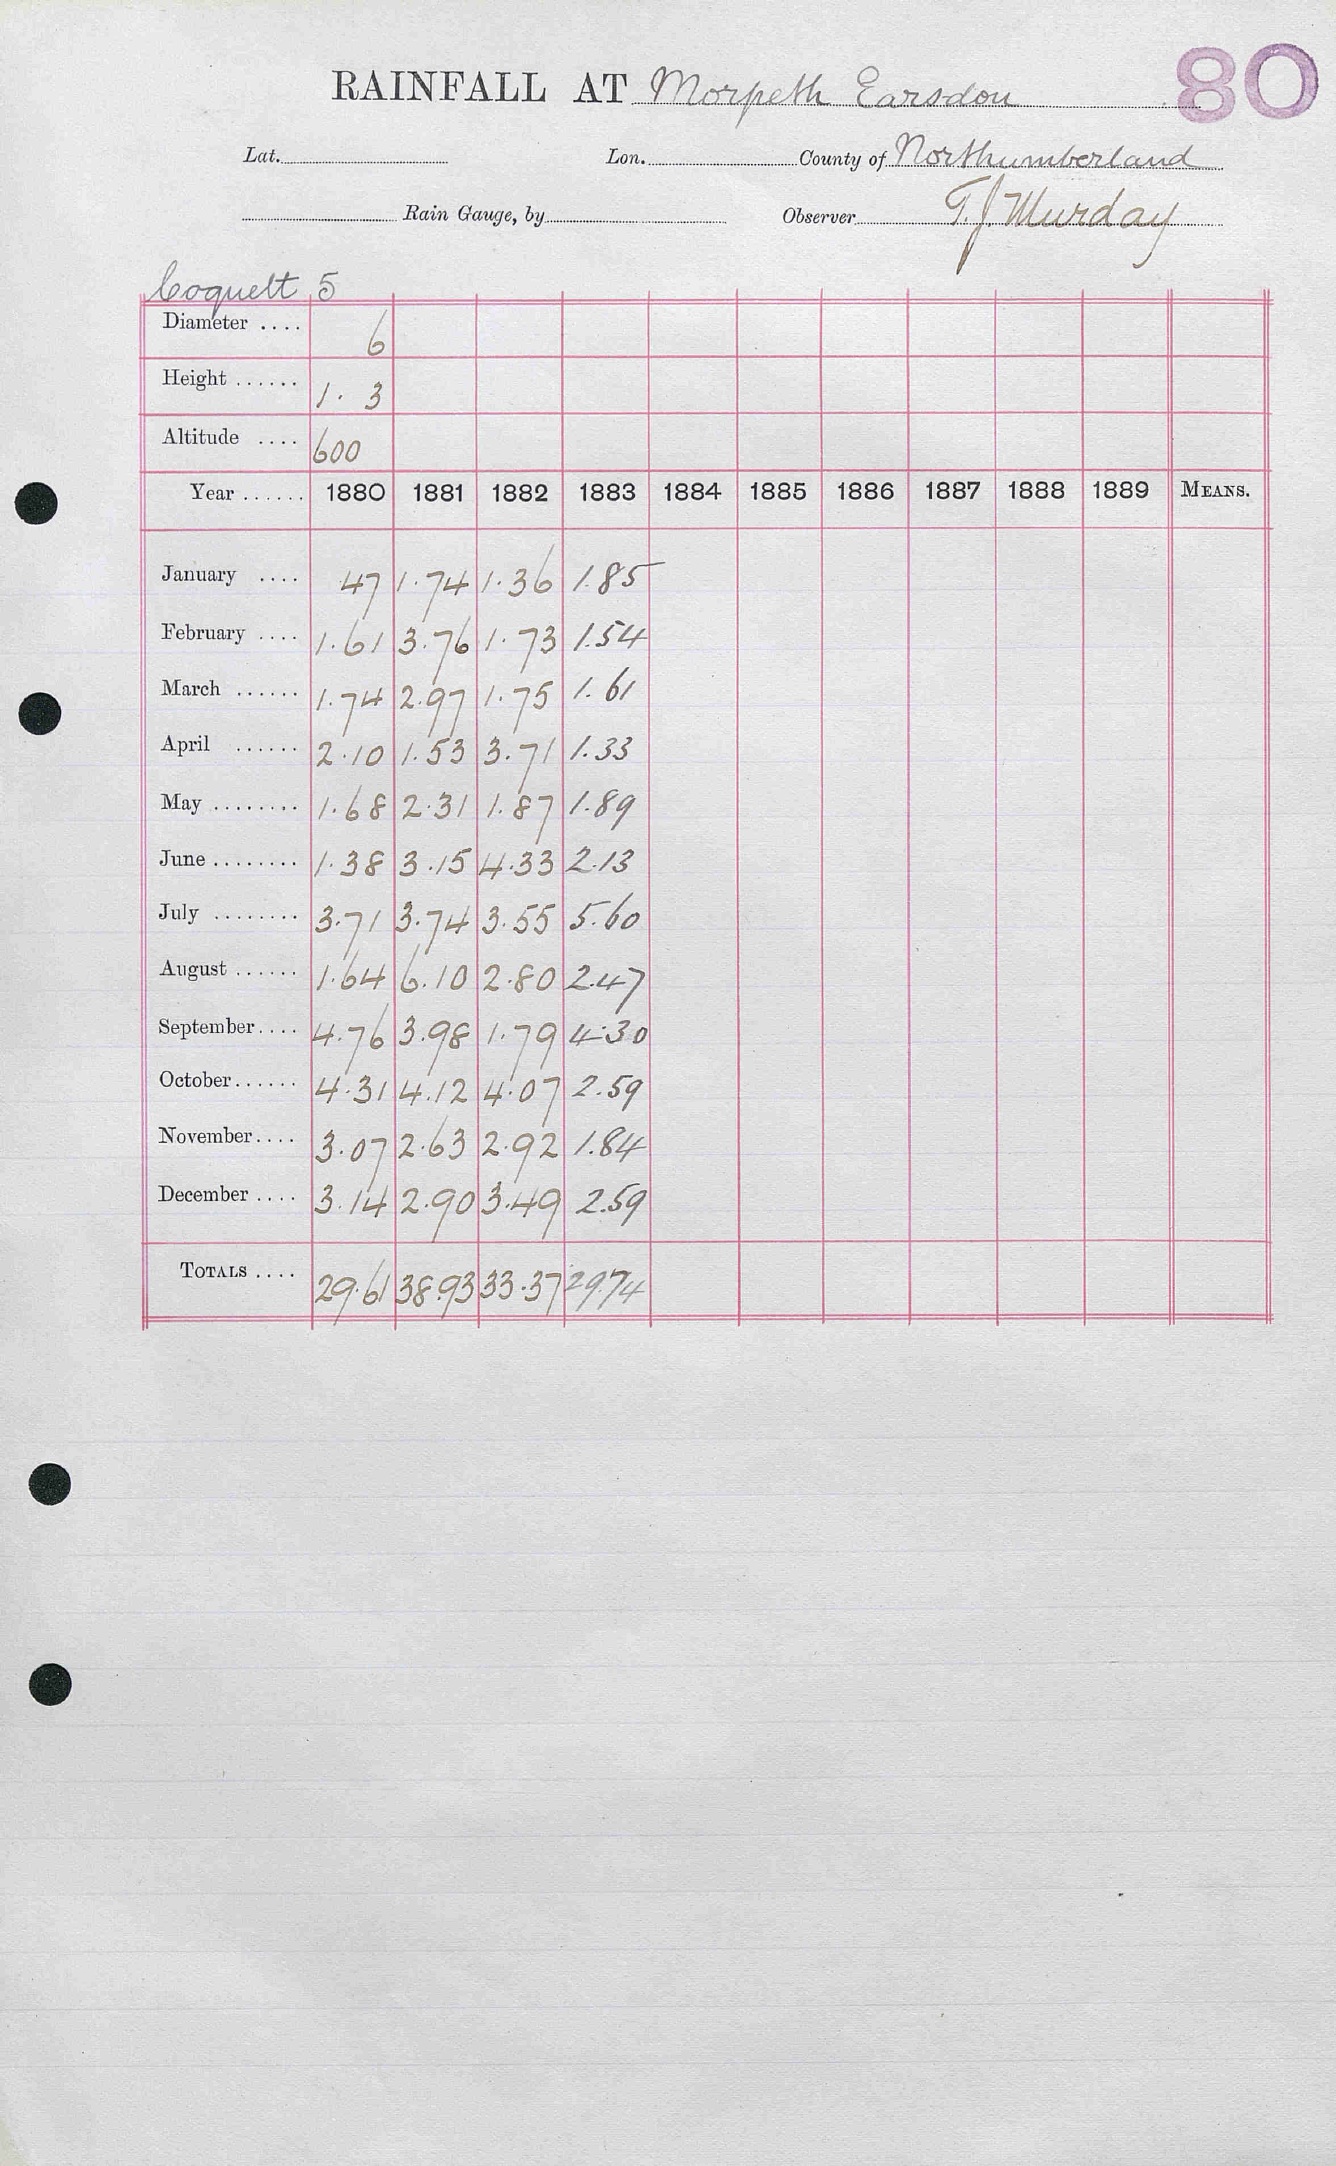 80
RAINFALL AT Morpeth Earsdon
Lat. Lon. County of Northumberland
Rain Gauge, by Observer T. J. Murday
Coquett 5
Diameter .... 6
Height ...... 1. 3
Altitude .... 600
Year ...... 1880 1881 1882 1883 1884 1885 1886 1887 1888 1889 MEANS.
January .... 47 1.74 1.36 1.85
February .... 1.61 3.76 1.73 1.54
March ...... 1.74 2.97 1.75 1.61
April ...... 2.10 1.53 3.71 1.33
May ........ 1.68 2.31 1.87 1.89
June ........ 1.38 3.15 4.33 2.13
July ........ 3.71 3.74 3.55 5.60
August ...... 1.64 6.10 2.80 2.47
September.... 4.76 3.98 1.79 4.30
October...... 4.31 4.12 4.07 2.59
November.... 3.07 2.63 2.92 1.84
December .... 3.14 2.90 3.49 2.59
TOTALS .... 29.61 38.93 33.37 29.74